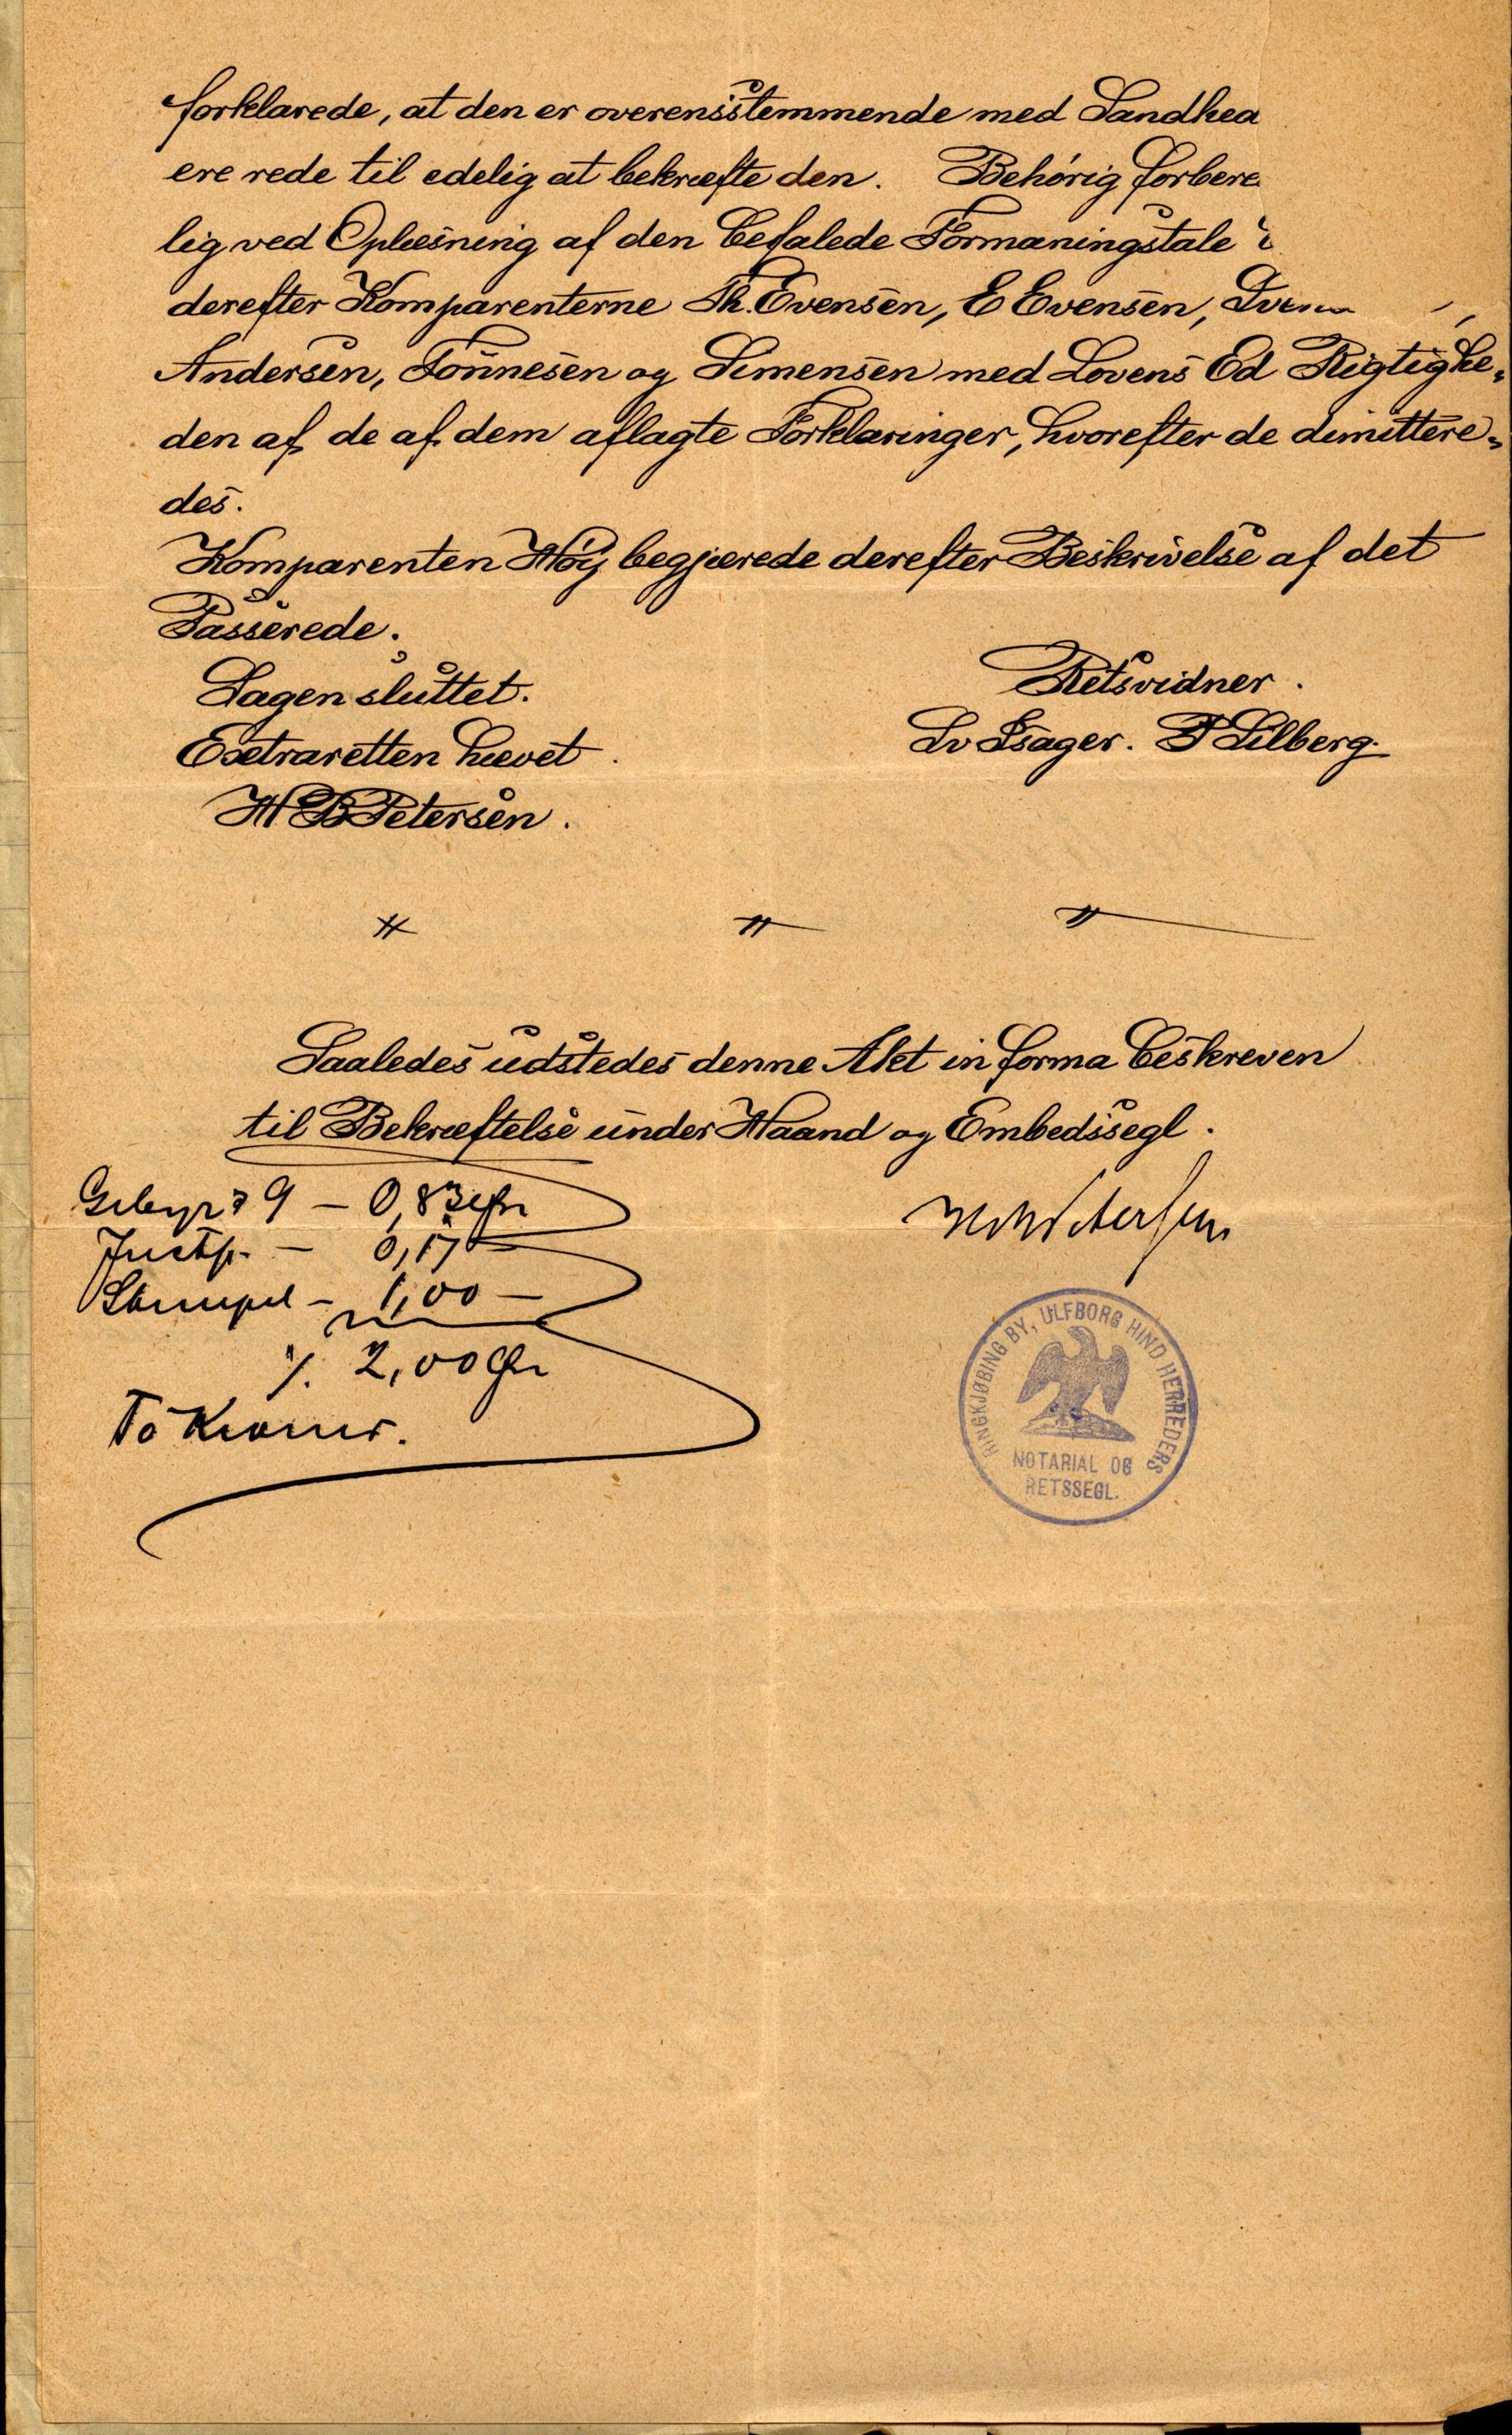 forklarede, at den er overensstemmende med Sandhed
ere rede til edelig at bekræfte den. Behørig forbere
lig ved Oplæsning af den befalede Formaningstale
derefter Komparenterne Th. Evensen, E Evensen,
Andersen, Tönnesen og Simensen med Lovens Ed Rigtighe„
den af de af dem aflagte Forklaringer, hvorefter de dimittere„
des.
Komparenten Høij begjærede derefter Beskrivelse af det
Passerede.
Sagen sluttet.
Extraretten hævet.
H B Petersen.
Retsvidner.
Lv Isager. P Lilberg.
Saaledes udstedes denne Akt in forma beskreven
til Bekræftelse under Haand og Embedssegl.
Gebyr 9 – 0,83
Justf. – 0,17 –
Stempel – 1,00 –
2,00
To Kroner.
RINGKJØBING BY, ULFBORG HIND HERREDERS
NOTARIAL OG
RETSSEGL.